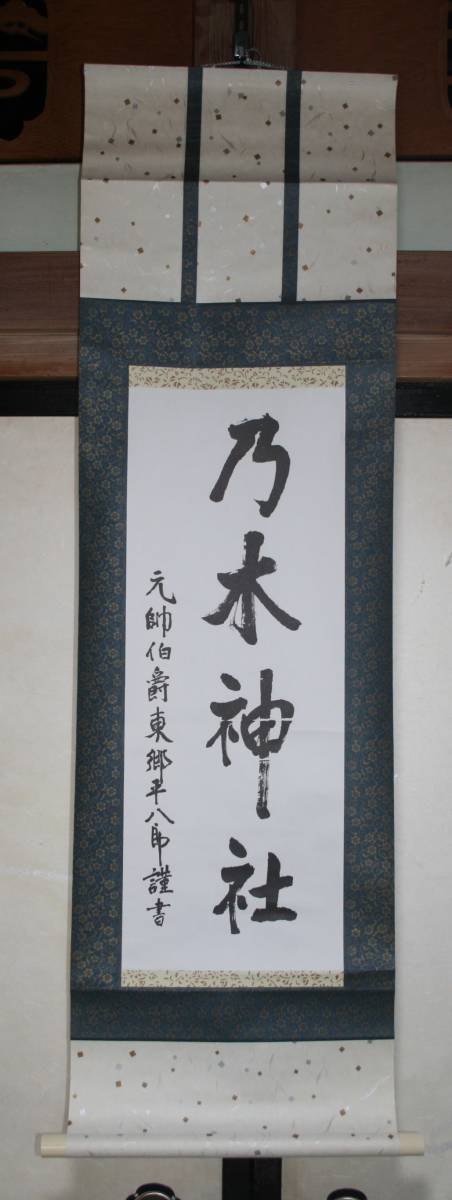 乃木神社
元帥伯爵東郷平八郎謹書